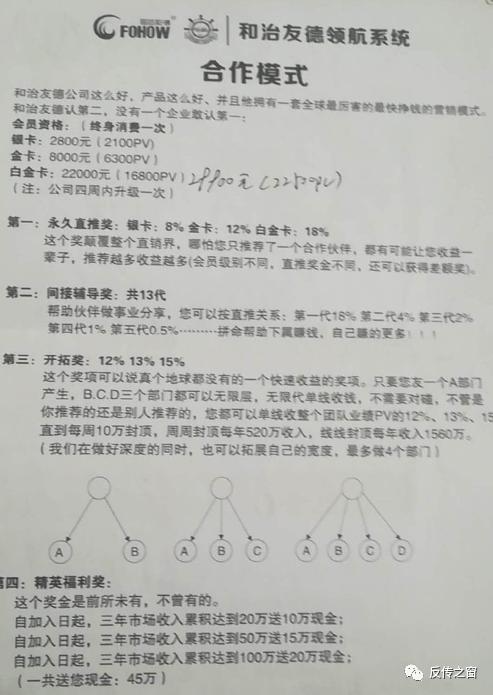 FOHOW 和治友德领航系统
合作模式
和治友德公司这么好，产品这么好、并且他拥有一套全球最厉害的最快挣钱的营销模式。
和治友德认第二，没有一个企业敢认第一：
会员资格：（终身消费一次）
银卡：2800元（2100PV）
金卡：8000元（6300PV）
白金卡：22000元（16800PV）29900元（22500PV）
（注：公司四周内升级一次）
第一：永久直推奖：银卡：8% 金卡：12% 白金卡：18%
这个奖颠覆整个直销界，哪怕您只推荐了一个合作伙伴，都有可能让您收益一
辈子，推荐越多收益越多(会员级别不同，直推奖金不同，还可以获得差额奖)。
第二：间接辅导奖：共13代
帮助伙伴做事业分享，您可以按直推关系：第一代18% 第二代4% 第三代2%
第四代1% 第五代0.5%………拼命帮助下属赚钱，自己赚的更多！！！
第三：开拓奖：12% 13% 15%
这个奖项可以说真个地球都没有的一个快速收益的奖项。只要您友一个A部门
产生，B.C.D三个部门都可以无限层，无限代单线收钱，不需要对碰，不管是
你推荐的还是别人推荐的，您都可以单线收整个团队业绩PV的12%、13%、15
直到每周10万封顶，周周封顶每年520万收入，线线封顶每年收入1560万。
（我们在做好深度的同时，也可以拓展自己的宽度，最多做4个部门）
A B A B C A B C D
第四：精英福利奖：
这个奖金是前所未有，不曾有的。
自加入日起，三年市场收入累积达到20万送10万现金；
自加入日起，三年市场收入累积达到50万送15万现金；
自加入日起，三年市场收入累积达到100万送20万现金；
（一共送您现金：45万）
反传之窗